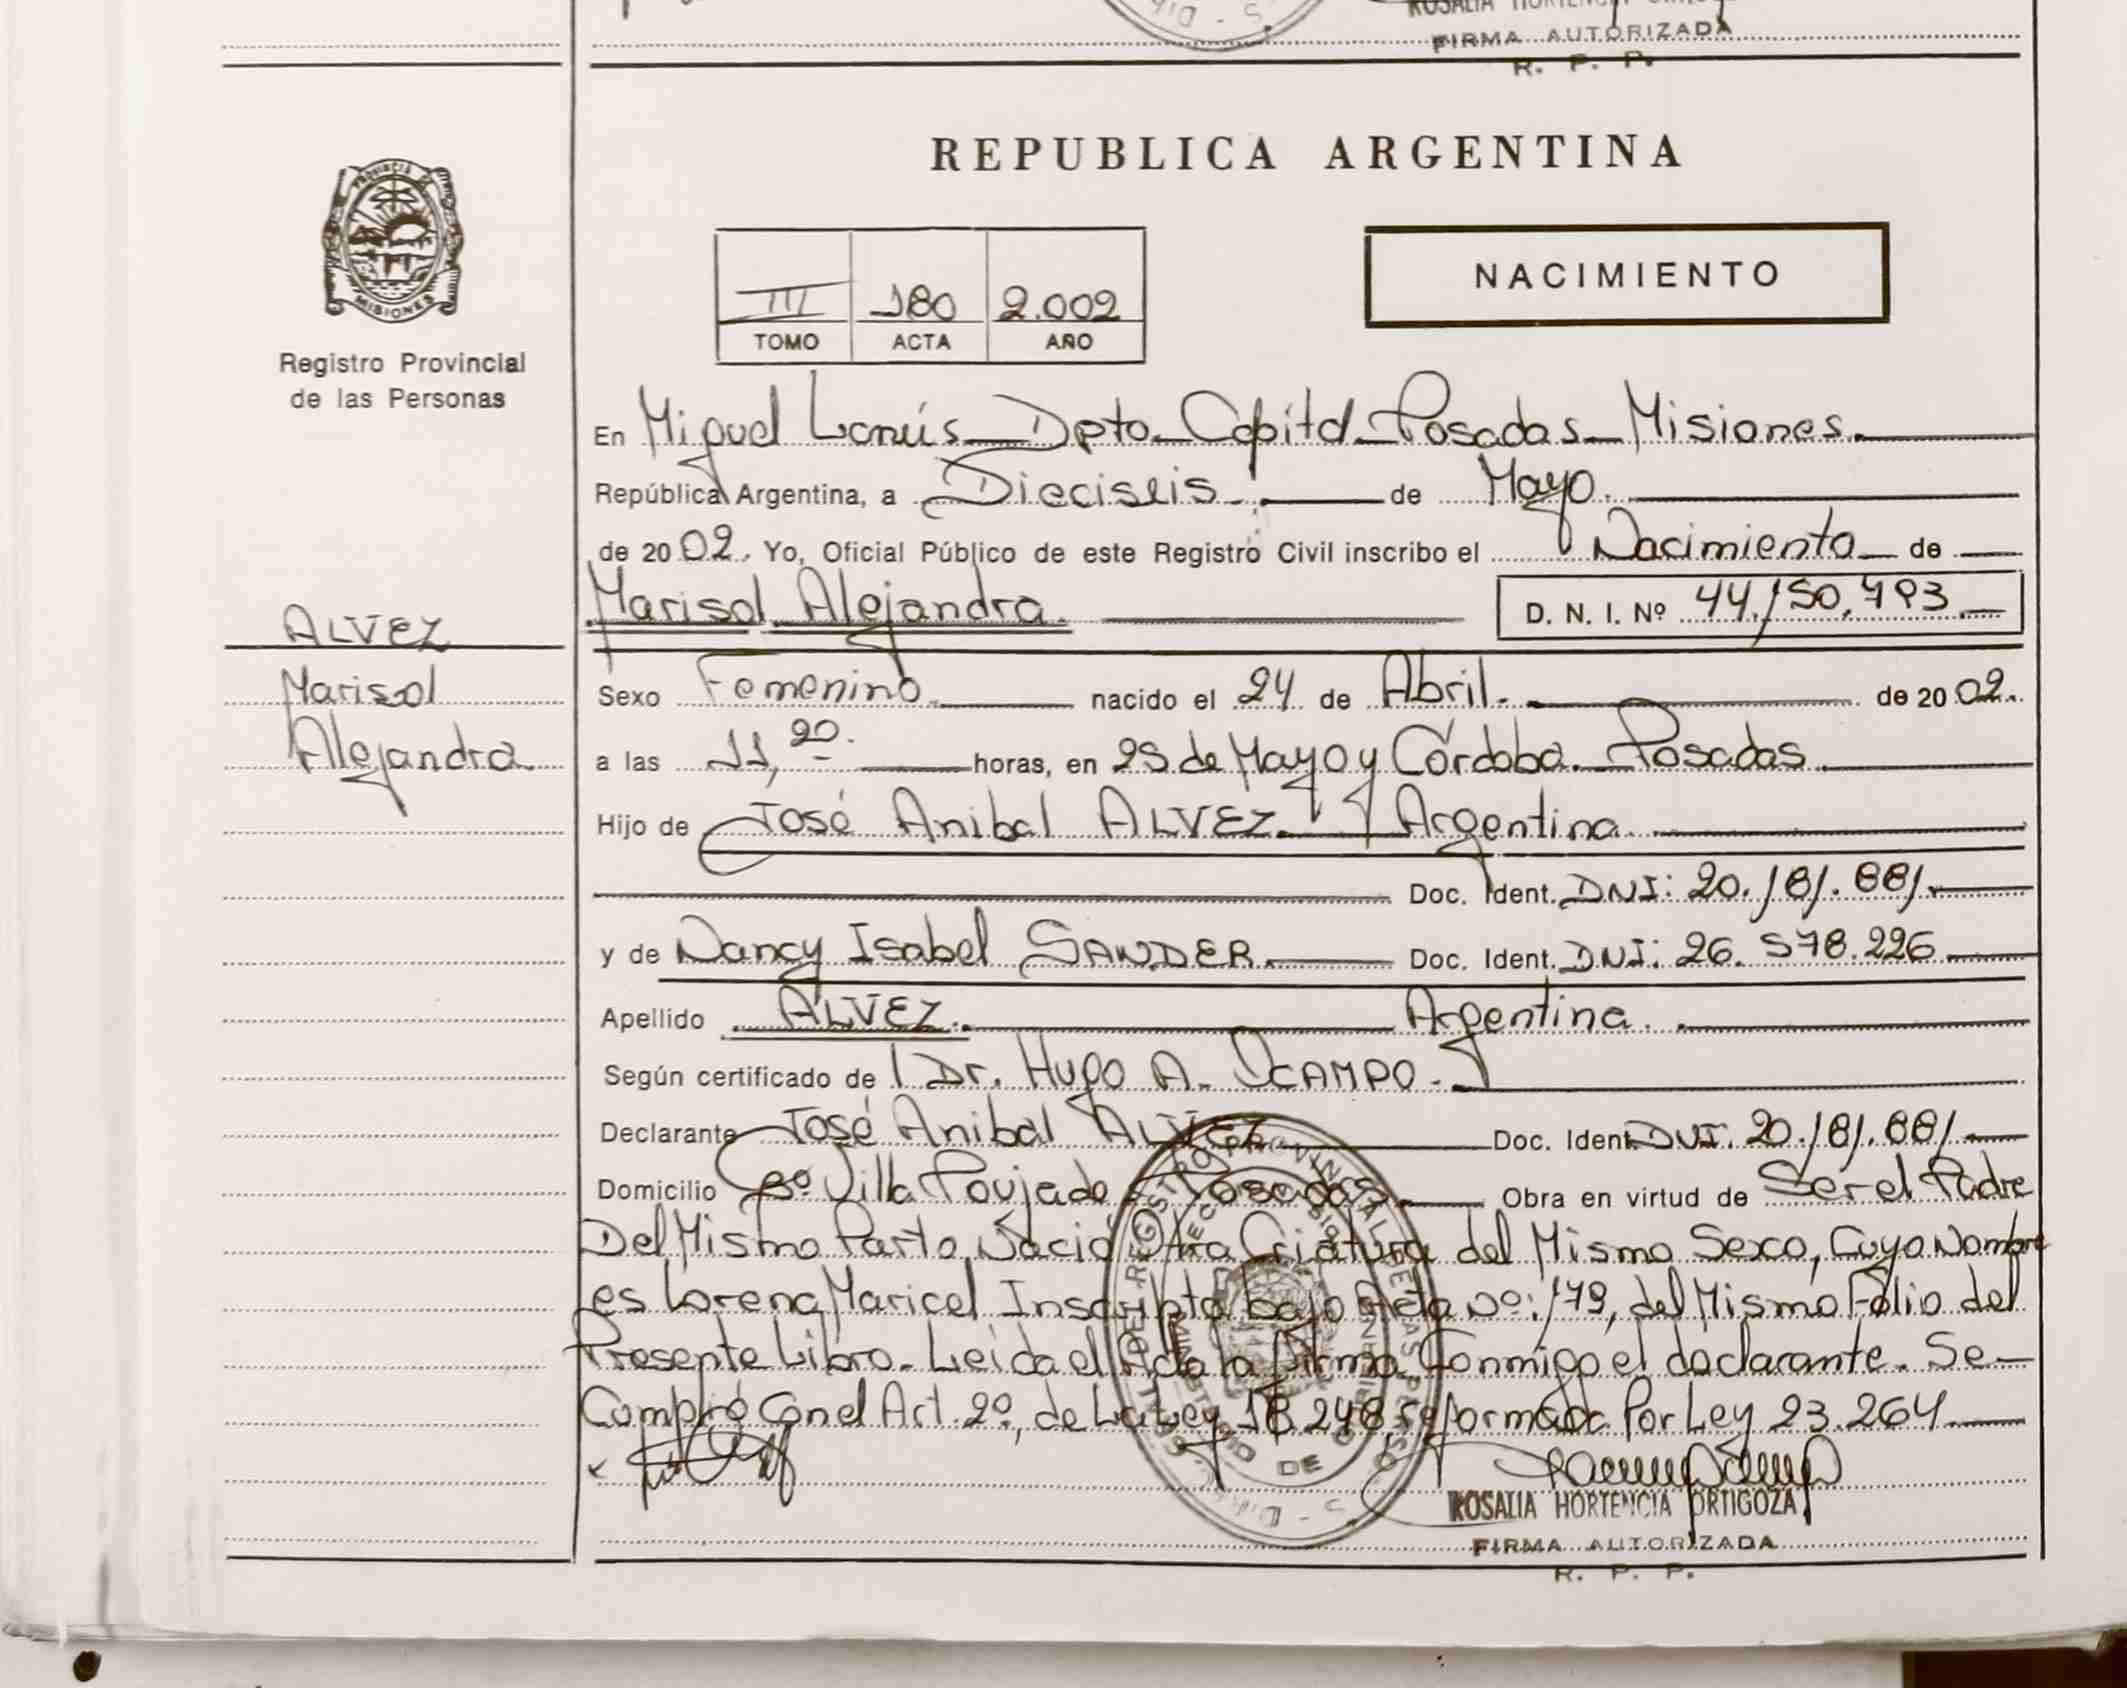 FIRMA AUTORIZADA
R. P. P.
REPUBLICA ARGENTINA
PROVINCIA DE
MISIONES
Registro Provincial
de las Personas
NACIMIENTO
III 180 2.002
TOMO ACTA AÑO
En Miguel Lanús Dpto. Capital Posadas Misiones.
República Argentina, a Dieciseis. de Mayo.
de 2002. Yo, Oficial Público de este Registro Civil inscribo el Nacimiento de
Marisol Alejandra. D. N. I. Nº 44.150.493.
ALVEZ
Marisol
Alejandra.
Sexo Femenino. nacido el 24 de Abril. de 2002.
a las 11,20. horas, en 25 de Mayo y Córdoba. Posadas.
Hijo de José Anibal ALVEZ. Argentino.
Doc. Ident. DNI: 20.181.881.
y de Nancy Isabel SANDER. Doc. Ident. DNI: 26.578.226
Apellido ALVEZ. Argentina.
Según certificado de Dr. Hugo A. OCAMPO.
Declarante José Anibal ALVEZ Doc. Ident. DNI. 20.181.881
Domicilio Bº Villa Poujade Posadas. Obra en virtud de Ser el Padre
Del Mismo Parto Nació Otra Criatura del Mismo Sexo, Cuyo Nombre
es Lorena Maricel Inscripta bajo Acta Nº: 179, del Mismo Folio del
Presente Libro. Leida el Acta la Firma Conmigo el declarante. Se
Cumplió Con el Art. 2º, de La Ley 18.248, reformada Por Ley 23.264
ROSALIA HORTENCIA ORTIGOZA
FIRMA AUTORIZADA
R. P. P.